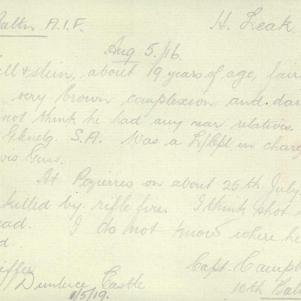 Battn A.I.F. H. Leak
Aug 5./16
all & slim, about 19 years of age, fair
very brown complexion and dar
not think he had any near relatives
Glenelg. S.A. Was a L/Cpl in charg
wis Gun.
At Pozieres on about 25th July
killed by rifle fire. I think shot
ead. I do not know where he
d
Capt. Campb
Dunluce Castle
1/5/19. 10th Batt